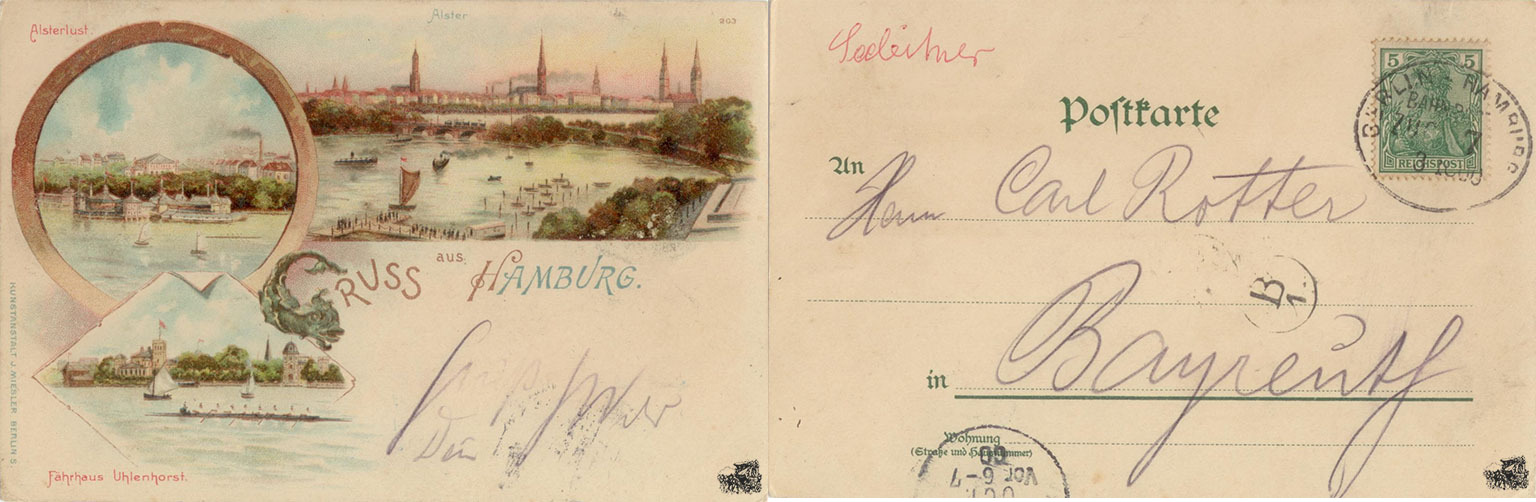 Alsterlust.
Alster
203
GRUSS aus HAMBURG.
KUNSTANSTALT J. MIESLER BERLIN S.
Fährhaus Uhlenhorst.
Postkarte
5 5
REICHSPOST
BERLIN HAMBURG
BAHNPOST
ZUG 7
An
Herrn Carl Rotter
B
1.
in Bayreuth
Wohnung
(Straße und Hausnummer)
00
Vor 6-7
OCT